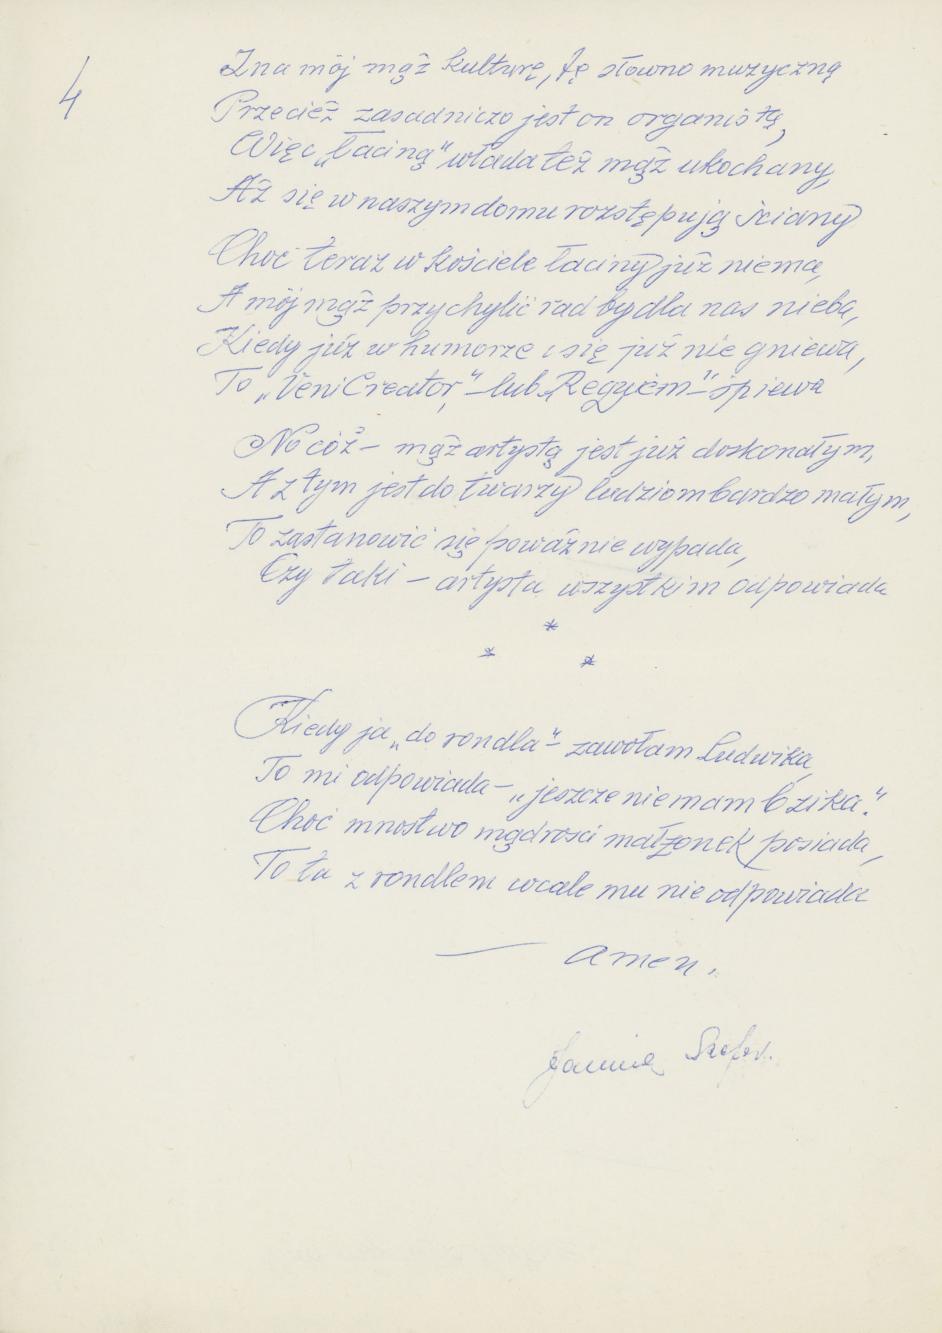 4
Zna mój mąż kulturę, tę słowno muzyczną
Przecież zasadniczo jest on organistą,
Więc „łaciną" włada też mąż ukochany,
Aż się w naszym domu rozstępują ściany
Choć teraz w kościele łaciny już niema,
A mój mąż przychylić rad by dla nas nieba,
Kiedy już w humorze i się już nie gniewa,
To „Veni Creator," – lub „Reqyjem" – śpiewa
No cóż – mąż artystą jest już doskonałym,
A z tym jest do twarzy ludziom bardzo małym,
To zastanowić się poważnie wypada,
Czy taki – artysta wszystkim odpowiada
*
* *
Kiedy ja „do rondla" – zawołam Ludwika,
To mi odpowiada – „jeszcze nie mam bzika."
Choć mnostwo mądrości małżonek posiada,
To ta z rondlem wcale mu nie odpowiada
— amen.
Janina